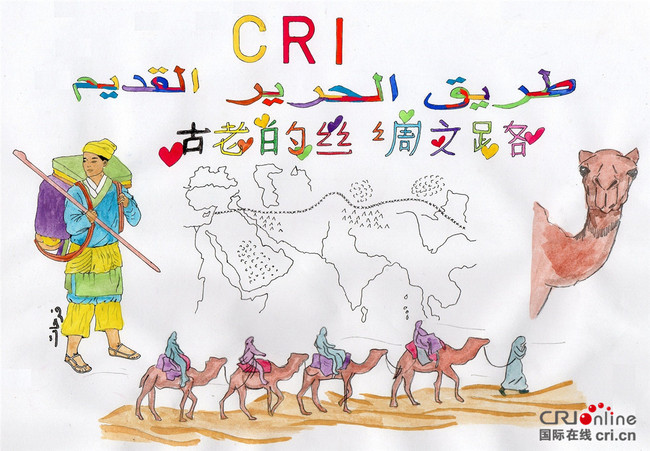 CRI
طريق الحرير القديم
古老的丝绸文足各
فرحات
CRIonline
国际在线 cri.cn